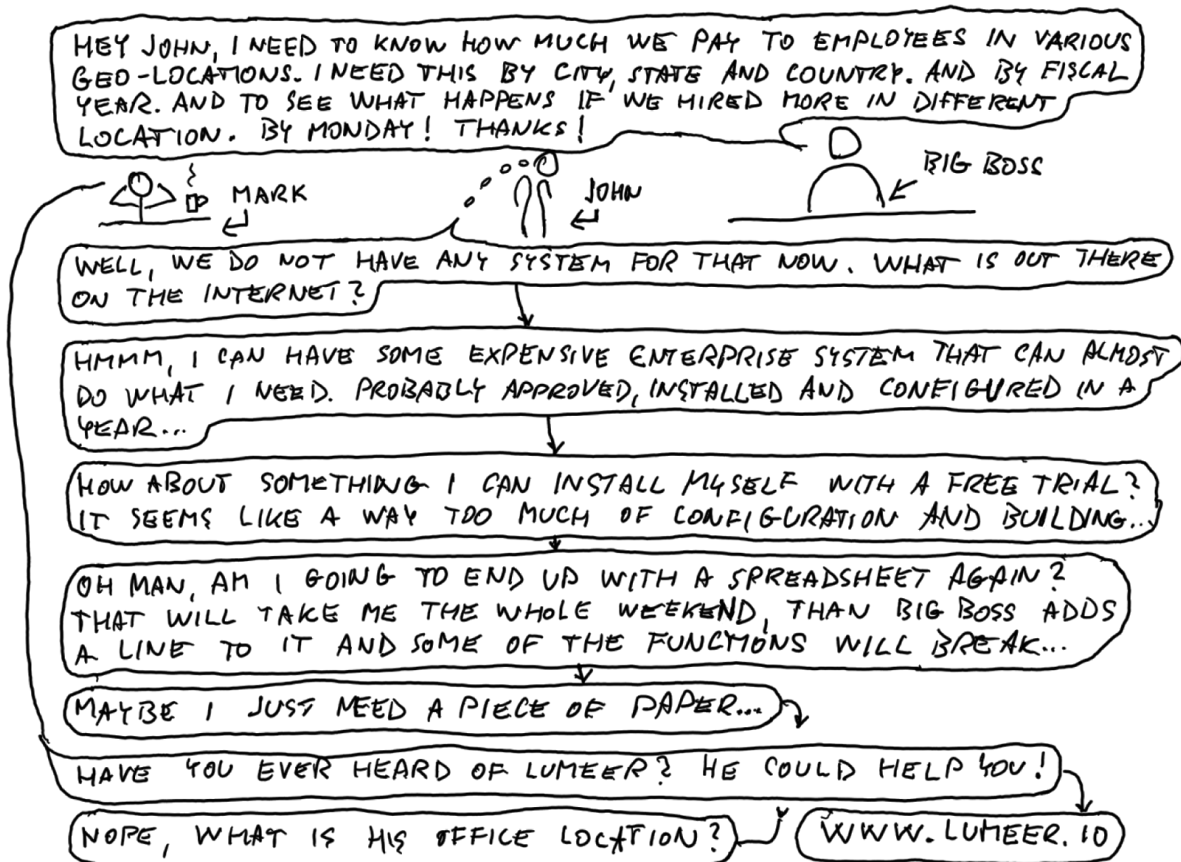 HEY JOHN, I NEED TO KNOW HOW MUCH WE PAY TO EMPLOYEES IN VARIOUS
GEO-LOCATIONS. I NEED THIS BY CITY, STATE AND COUNTRY. AND BY FISCAL
YEAR. AND TO SEE WHAT HAPPENS IF WE HIRED MORE IN DIFFERENT
LOCATION. BY MONDAY! THANKS!
MARK
JOHN
BIG BOSS
WELL, WE DO NOT HAVE ANY SYSTEM FOR THAT NOW. WHAT IS OUT THERE
ON THE INTERNET?
HMMM, I CAN HAVE SOME EXPENSIVE ENTERPRISE SYSTEM THAT CAN ALMOST
DO WHAT I NEED. PROBABLY APPROVED, INSTALLED AND CONFIGURED IN A
YEAR...
HOW ABOUT SOMETHING I CAN INSTALL MYSELF WITH A FREE TRIAL?
IT SEEMS LIKE A WAY TOO MUCH OF CONFIGURATION AND BUILDING...
OH MAN, AM I GOING TO END UP WITH A SPREADSHEET AGAIN?
THAT WILL TAKE ME THE WHOLE WEEKEND, THAN BIG BOSS ADDS
A LINE TO IT AND SOME OF THE FUNCTIONS WILL BREAK...
MAYBE I JUST NEED A PIECE OF PAPER...
HAVE YOU EVER HEARD OF LUMEER? HE COULD HELP YOU!
NOPE, WHAT IS HIS OFFICE LOCATION?
WWW.LUMEER.IO